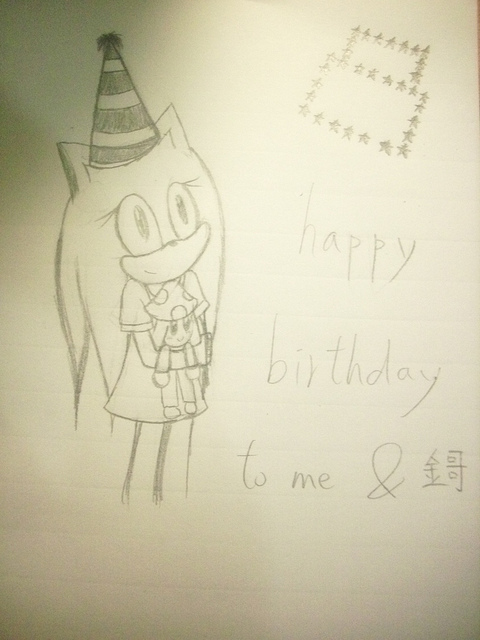 8
happy
birthday
to me & 鎶